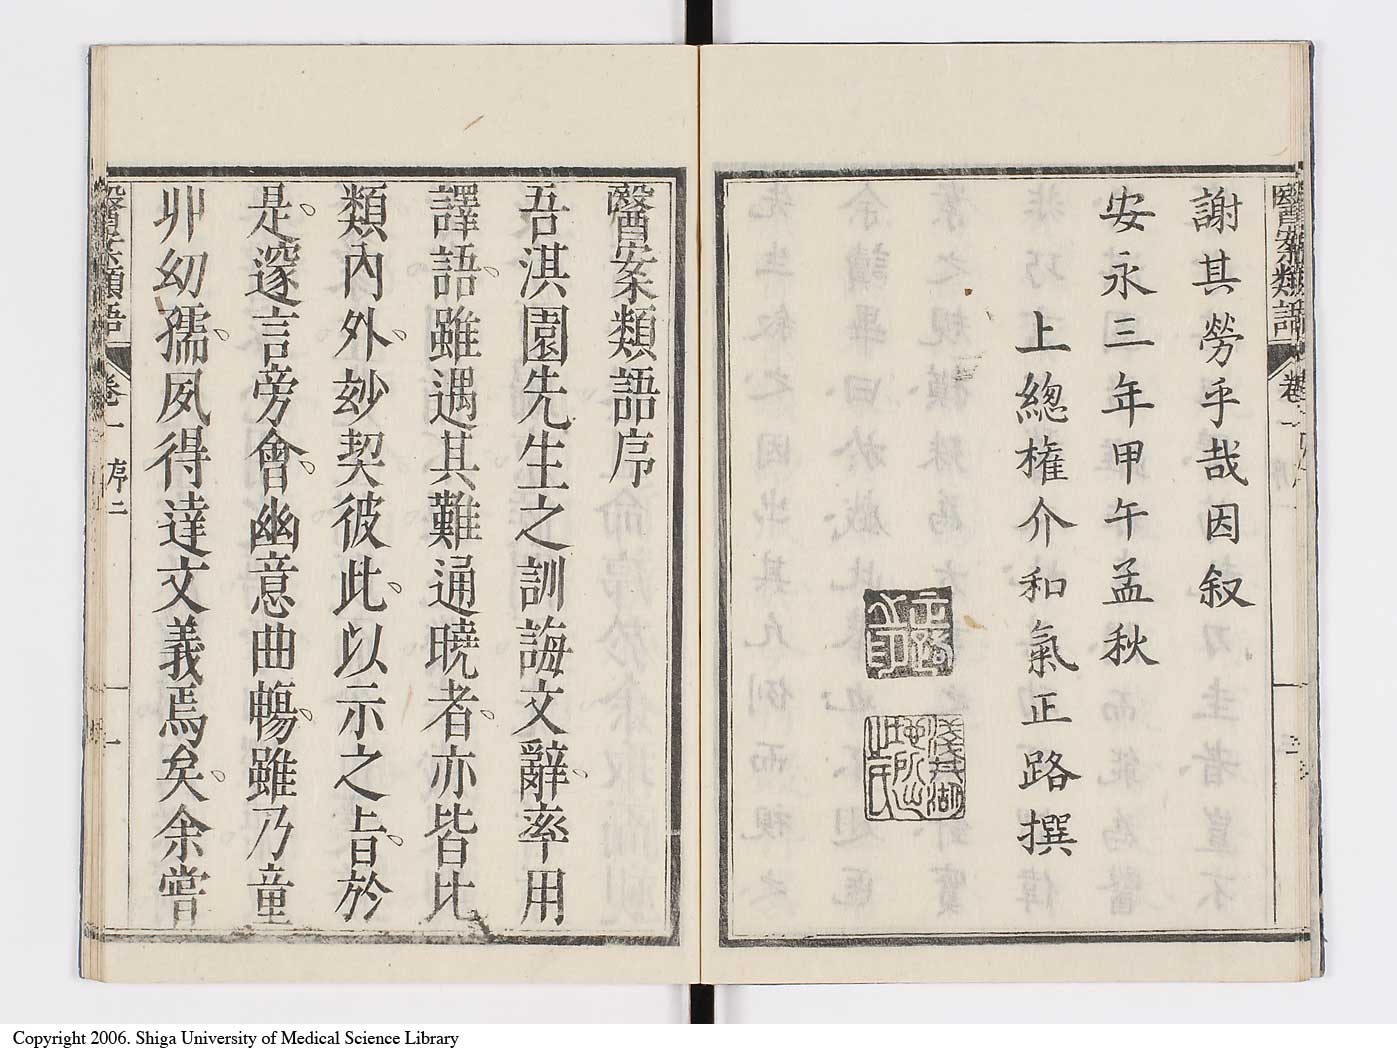 醫案類語
卷一
謝其勞乎哉因叙
安永三年甲午孟秋
上總權介和氣正路撰
醫案類語序
吾淇園先生之訓誨文辭率用
譯語雖遇其難通曉者亦皆比
類內外玅契彼此以示之旨於
是邃言旁會幽意曲暢雖乃童
丱幼孺夙得達文義焉矣余嘗
醫案類語
卷一
序二
Copyright 2006. Shiga University of Medical Science Library